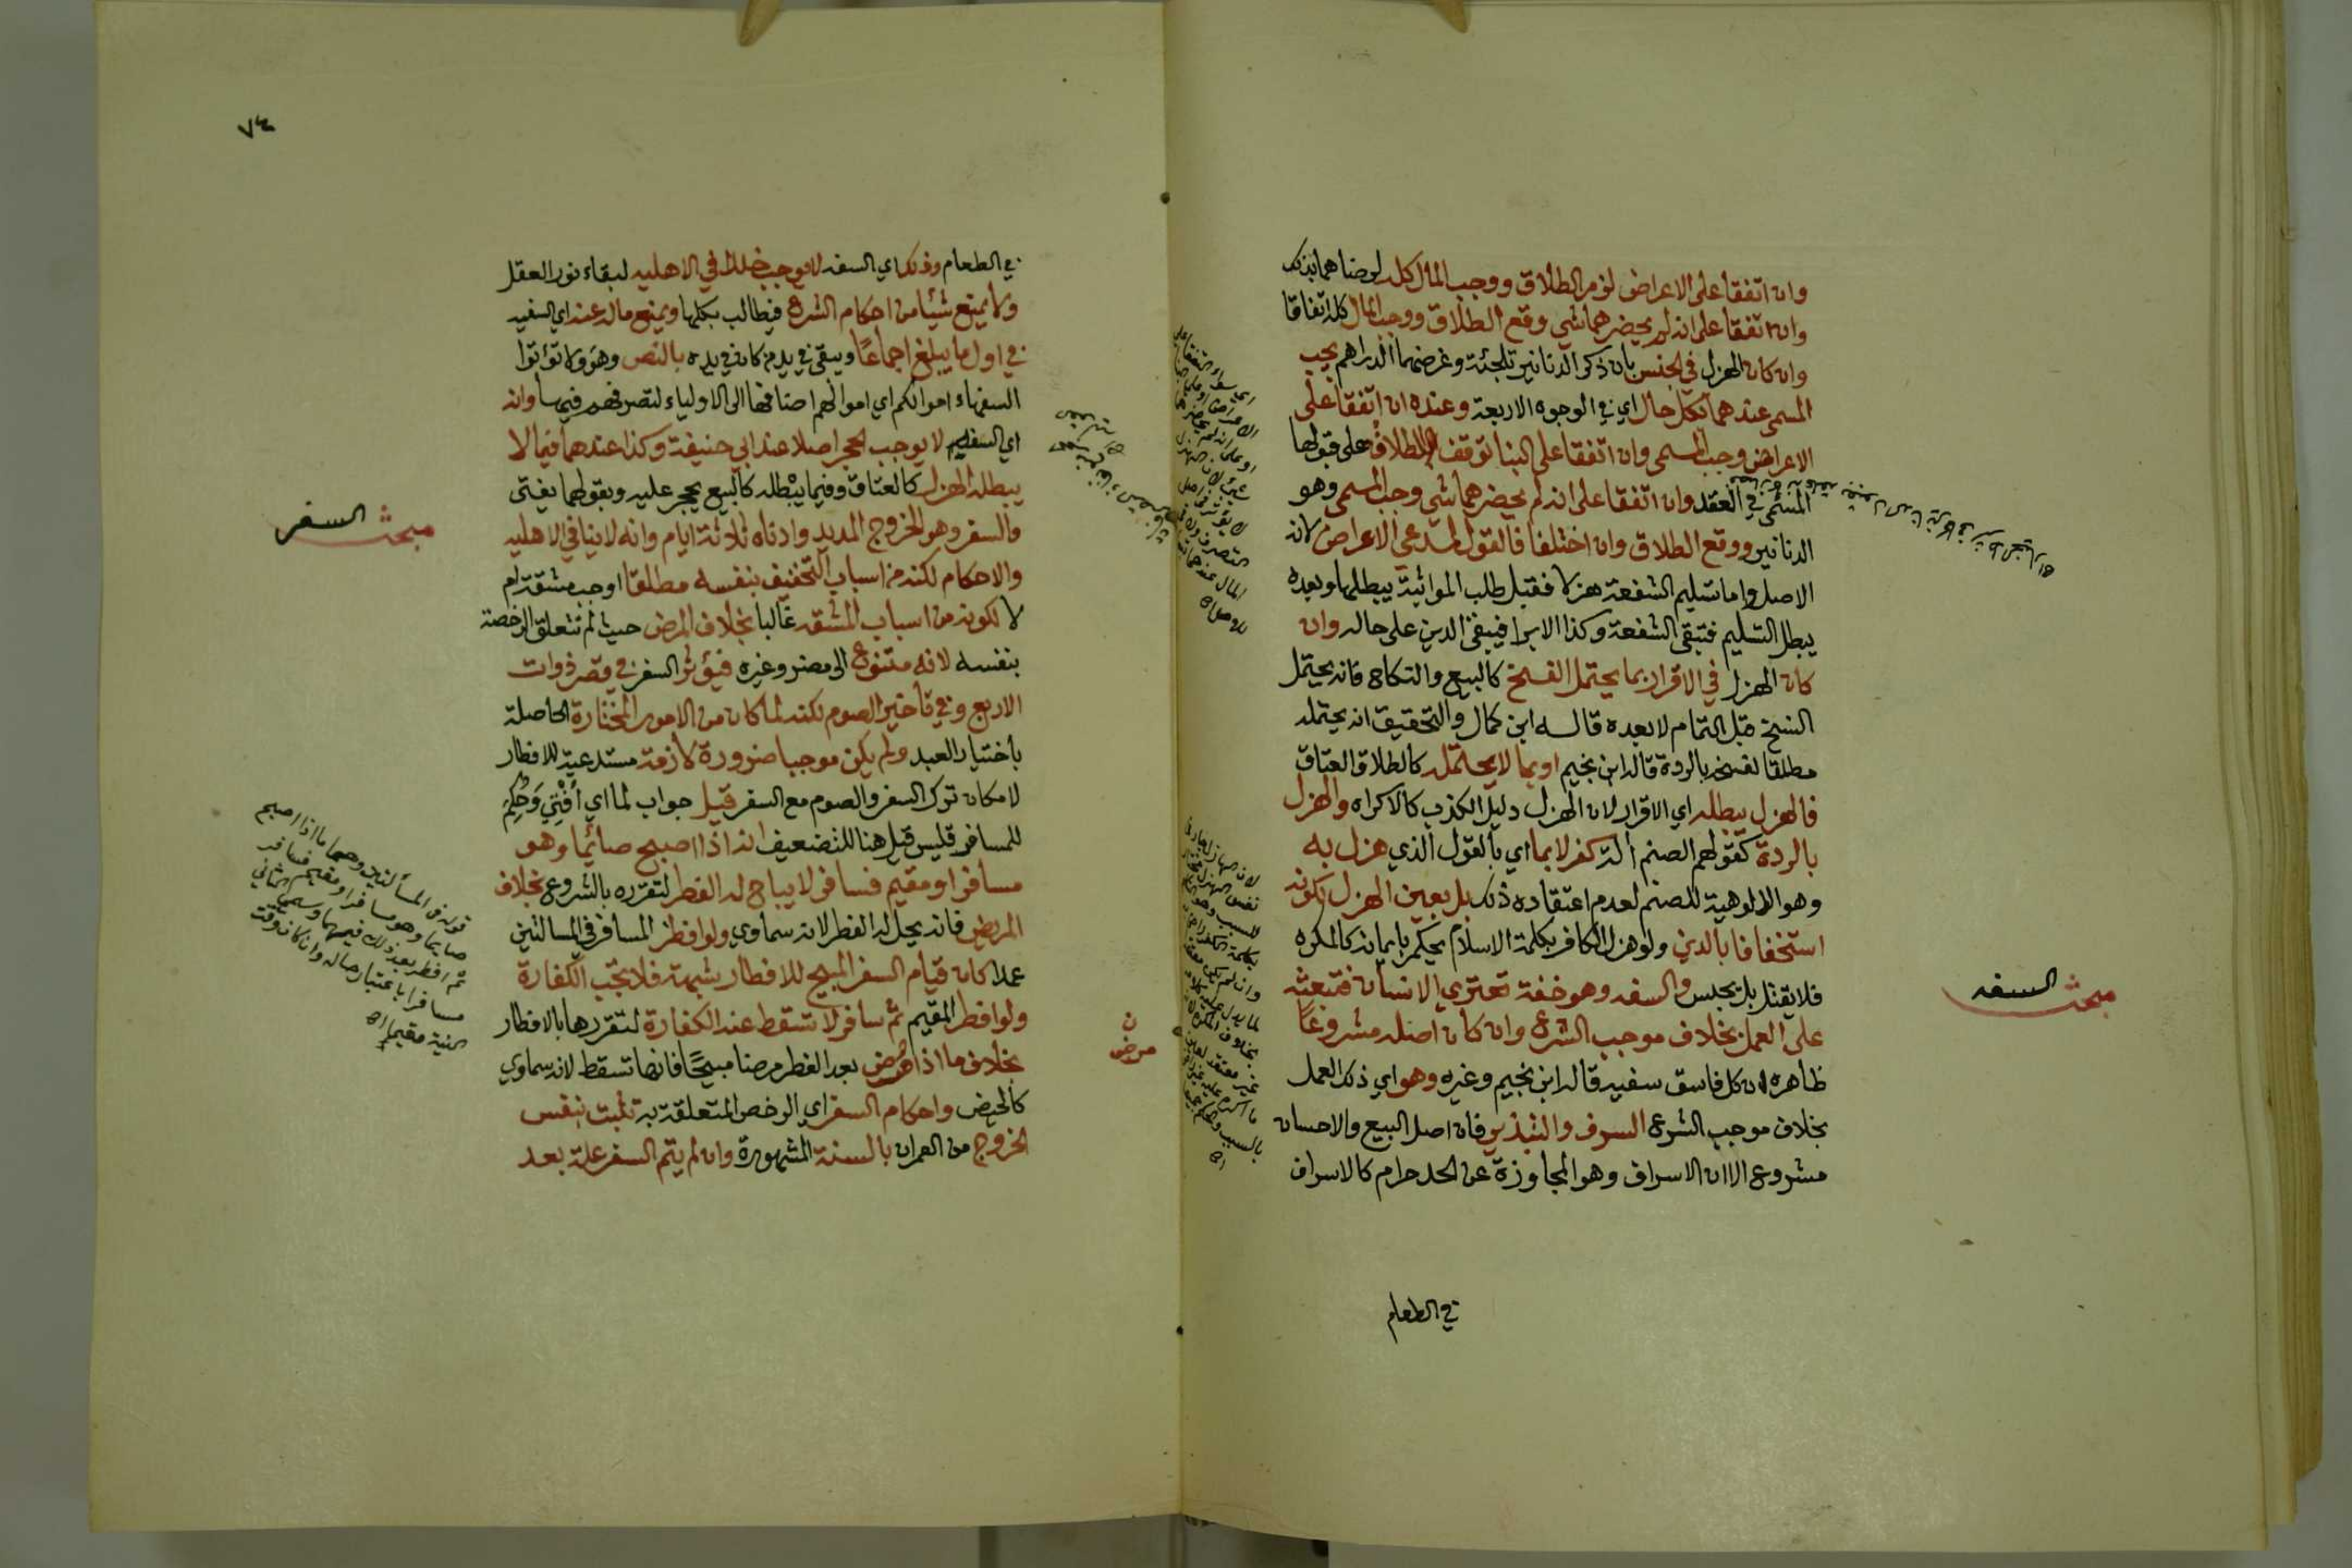 وان اتفقا على الاعراض لزم الطلاق ووجب المال كله لرضاهما بذلك
وان اتفقا على انه لم يحضرهما شي وقع الطلاق ووجب المال كله اتفاقا
وان كان الهزل في الجنس بان ذكر الدنانير تلجئة وغرضهما الدراهم يجب
المسمى عندهما بكل حال اي في الوجوه الاربعة وعنده ان اتفقا على
الاعراض وجب المسمى وان اتفقا على البنا توقف الطلاق على قبولها
المسمى في العقد وان اتفقا على انه لم يحضرهما شي وجب المسمى وهو
الدنانير ووقع الطلاق وان اختلفا فالقول لمدعي الاعراض لانه
الاصل واما تسليم الشفعة هزلا فقبل طلب المواثبة يبطلها وبعده
يبطل التسليم فتبقى الشفعة وكذا الابرا فيبقى الدين على حاله وان
كان الهزل في الاقرار بما يحتمل الفسخ كالبيع والنكاح فانه يحتمل
الفسخ قبل التمام لا بعده قاله ابن كمال والتحقيق انه يحتمله
مطلقا لفسخه بالردة قاله ابن نجيم او بما لا يحتمله كالطلاق والعتاق
فالهزل يبطله اي الاقرار لان الهزل دليل الكذب كالاكراه والهزل
بالردة كقولهم الصنم اله كفر لا بما اي بالقول الذي هزل به
وهو الالوهية للصنم لعدم اعتقاده ذلك بل بعين الهزل لكونه
استخفافا بالدين ولو هزل الكافر بكلمة الاسلام يحكم بايمانه كالمكره
فلا يقتل بل يحبس والسفه وهو خفة تعتري الانسان فتبعثه
على العمل بخلاف موجب الشرع وان كان اصله مشروعا
ظاهره ان كل فاسق سفيه قاله ابن نجيم وغيره وهو اي ذلك العمل
بخلاف موجب الشرع السرف والتبذير فان اصل البيع والاحسان
مشروع الا ان الاسراف وهو المجاوزة عن الحد حرام كالاسراف
في الطعام
مبحث السفه
٧٤
في الطعام وذلك اي السفه لا يوجب خللا في الاهليه لبقاء نور العقل
ولا يمنع شيئا من احكام الشرع فيطالب بكلها ويمنع ماله عنه اي السفيه
في اول ما يبلغ اجماعا ويبقى في يد من كان في يده بالنص وهو ولا تؤتوا
السفهاء اموالكم اي اموالهم اضافها الى الاولياء لتصرفهم فيها وانه
اي السفه لا يوجب الحجر اصلا عند ابي حنيفة وكذا عندهما فيما لا
يبطله الهزل كالعتاق وفيما يبطله كالبيع يحجر عليه وبقولهما يفتى
والسفر وهو الخروج المديد وادناه ثلاثة ايام وانه لا ينافي الاهليه
والاحكام لكنه من اسباب التخفيف بنفسه مطلقا اوجب مشقة ام
لا لكونه من اسباب المشقه غالبا بخلاف المرض حيث لم تتعلق الرخصة
بنفسه لانه متنوع الى مضر وغيره فيؤثر السفر في قصر ذوات
الاربع وفي تأخير الصوم لكنه لما كان من الامور المختارة الحاصلة
باختيار العبد ولم يكن موجبا ضرورة لازمة مستدعية للافطار
لامكان ترك السفر والصوم مع السفر قيل جواب لما اي افتي وحكم
للمسافر فليس قيل هنا للتضعيف انه اذا اصبح صائما وهو
مسافر او مقيم فسافر لا يباح له الفطر لتقرره بالشروع بخلاف
المريض فانه يحل له الفطر لانه سماوي ولو افطر المسافر في المسالتين
عمدا كان قيام السفر المبيح للافطار شبهة فلا تجب الكفارة
ولو افطر المقيم ثم سافر لا تسقط عنه الكفارة لتقررها بالافطار
بخلاف ما اذا مرض بعد الفطر مرضا مبيحا فانها تسقط لانه سماوي
كالحيض واحكام السفر اي الرخص المتعلقة به تثبت بنفس
الخروج من العمران بالسنة المشهورة وان لم يتم السفر علة بعد
مبحث السفر
ن
مرض
قوله في المسألتين وهما ما اذا اصبح
صايما وهو مسافر او مقيم فسافر
ثم افطر بعد ذلك فيهما وسمي الثاني
مسافرا باعتبار حاله وان كان وقت
النية مقيما اه